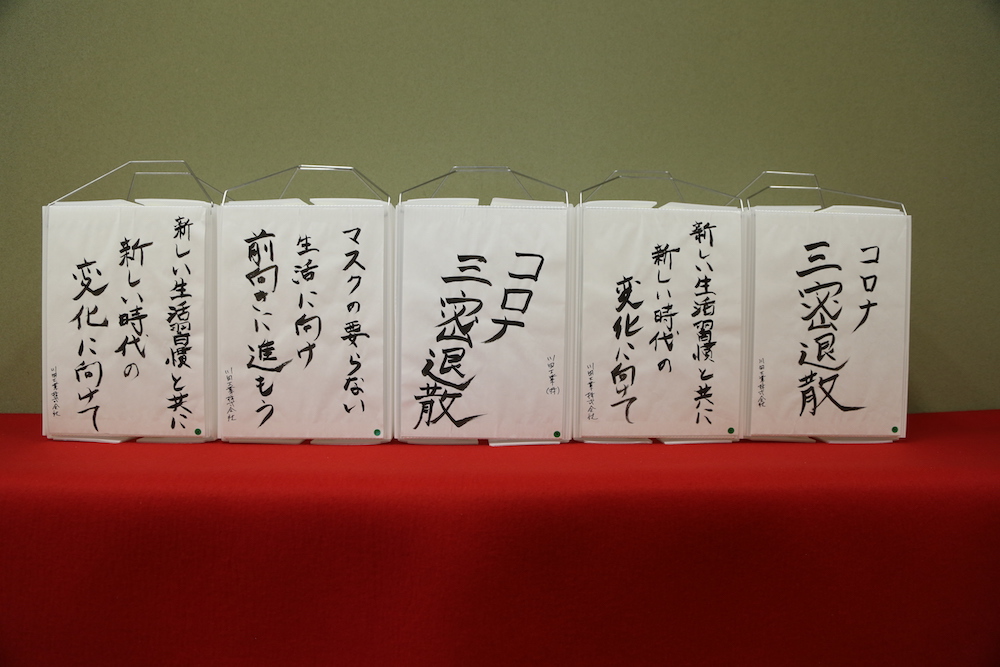 コロナ
三密退散
川田工業株式会社
新しい生活習慣と共に
新しい時代の
変化に向けて
川田工業株式会社
コロナ
三密退散
川田工業(株)
マスクの要らない
生活に向け
前向きに進もう
川田工業株式会社
新しい生活習慣と共に
新しい時代の
変化に向けて
川田工業株式会社